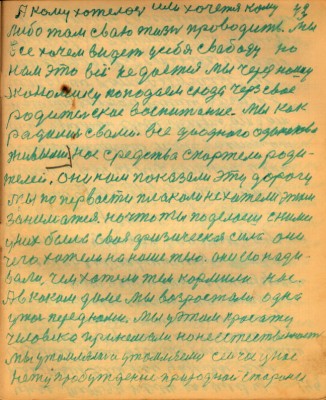 А кому хотелось или хочется кому
либо там свою жизнь проводить. Мы
все хочем видеть у себя свабоду но
нам это всё не дается мы через нашу
экономику поподаем сюда через свое
родительское воспитание. Мы как
родились с вами все до одного одинаково
живыми, нас средства спортели роди-
телей. они нам показали эту дорогу
Мы по первости плакали не хотели этим
заниматся. но что ты поделаеш с ними
у них была своя физическая сила они
чего хотели на наше тело. они его наде-
вали, чем хотели тем кормили нас.
А в каком доме мы возростали одна
грязь перед нами. Мы у этом
человека нестественность
Мы утомлялись и утомляемся сейчас у нас
нету пробуждение природной стороны